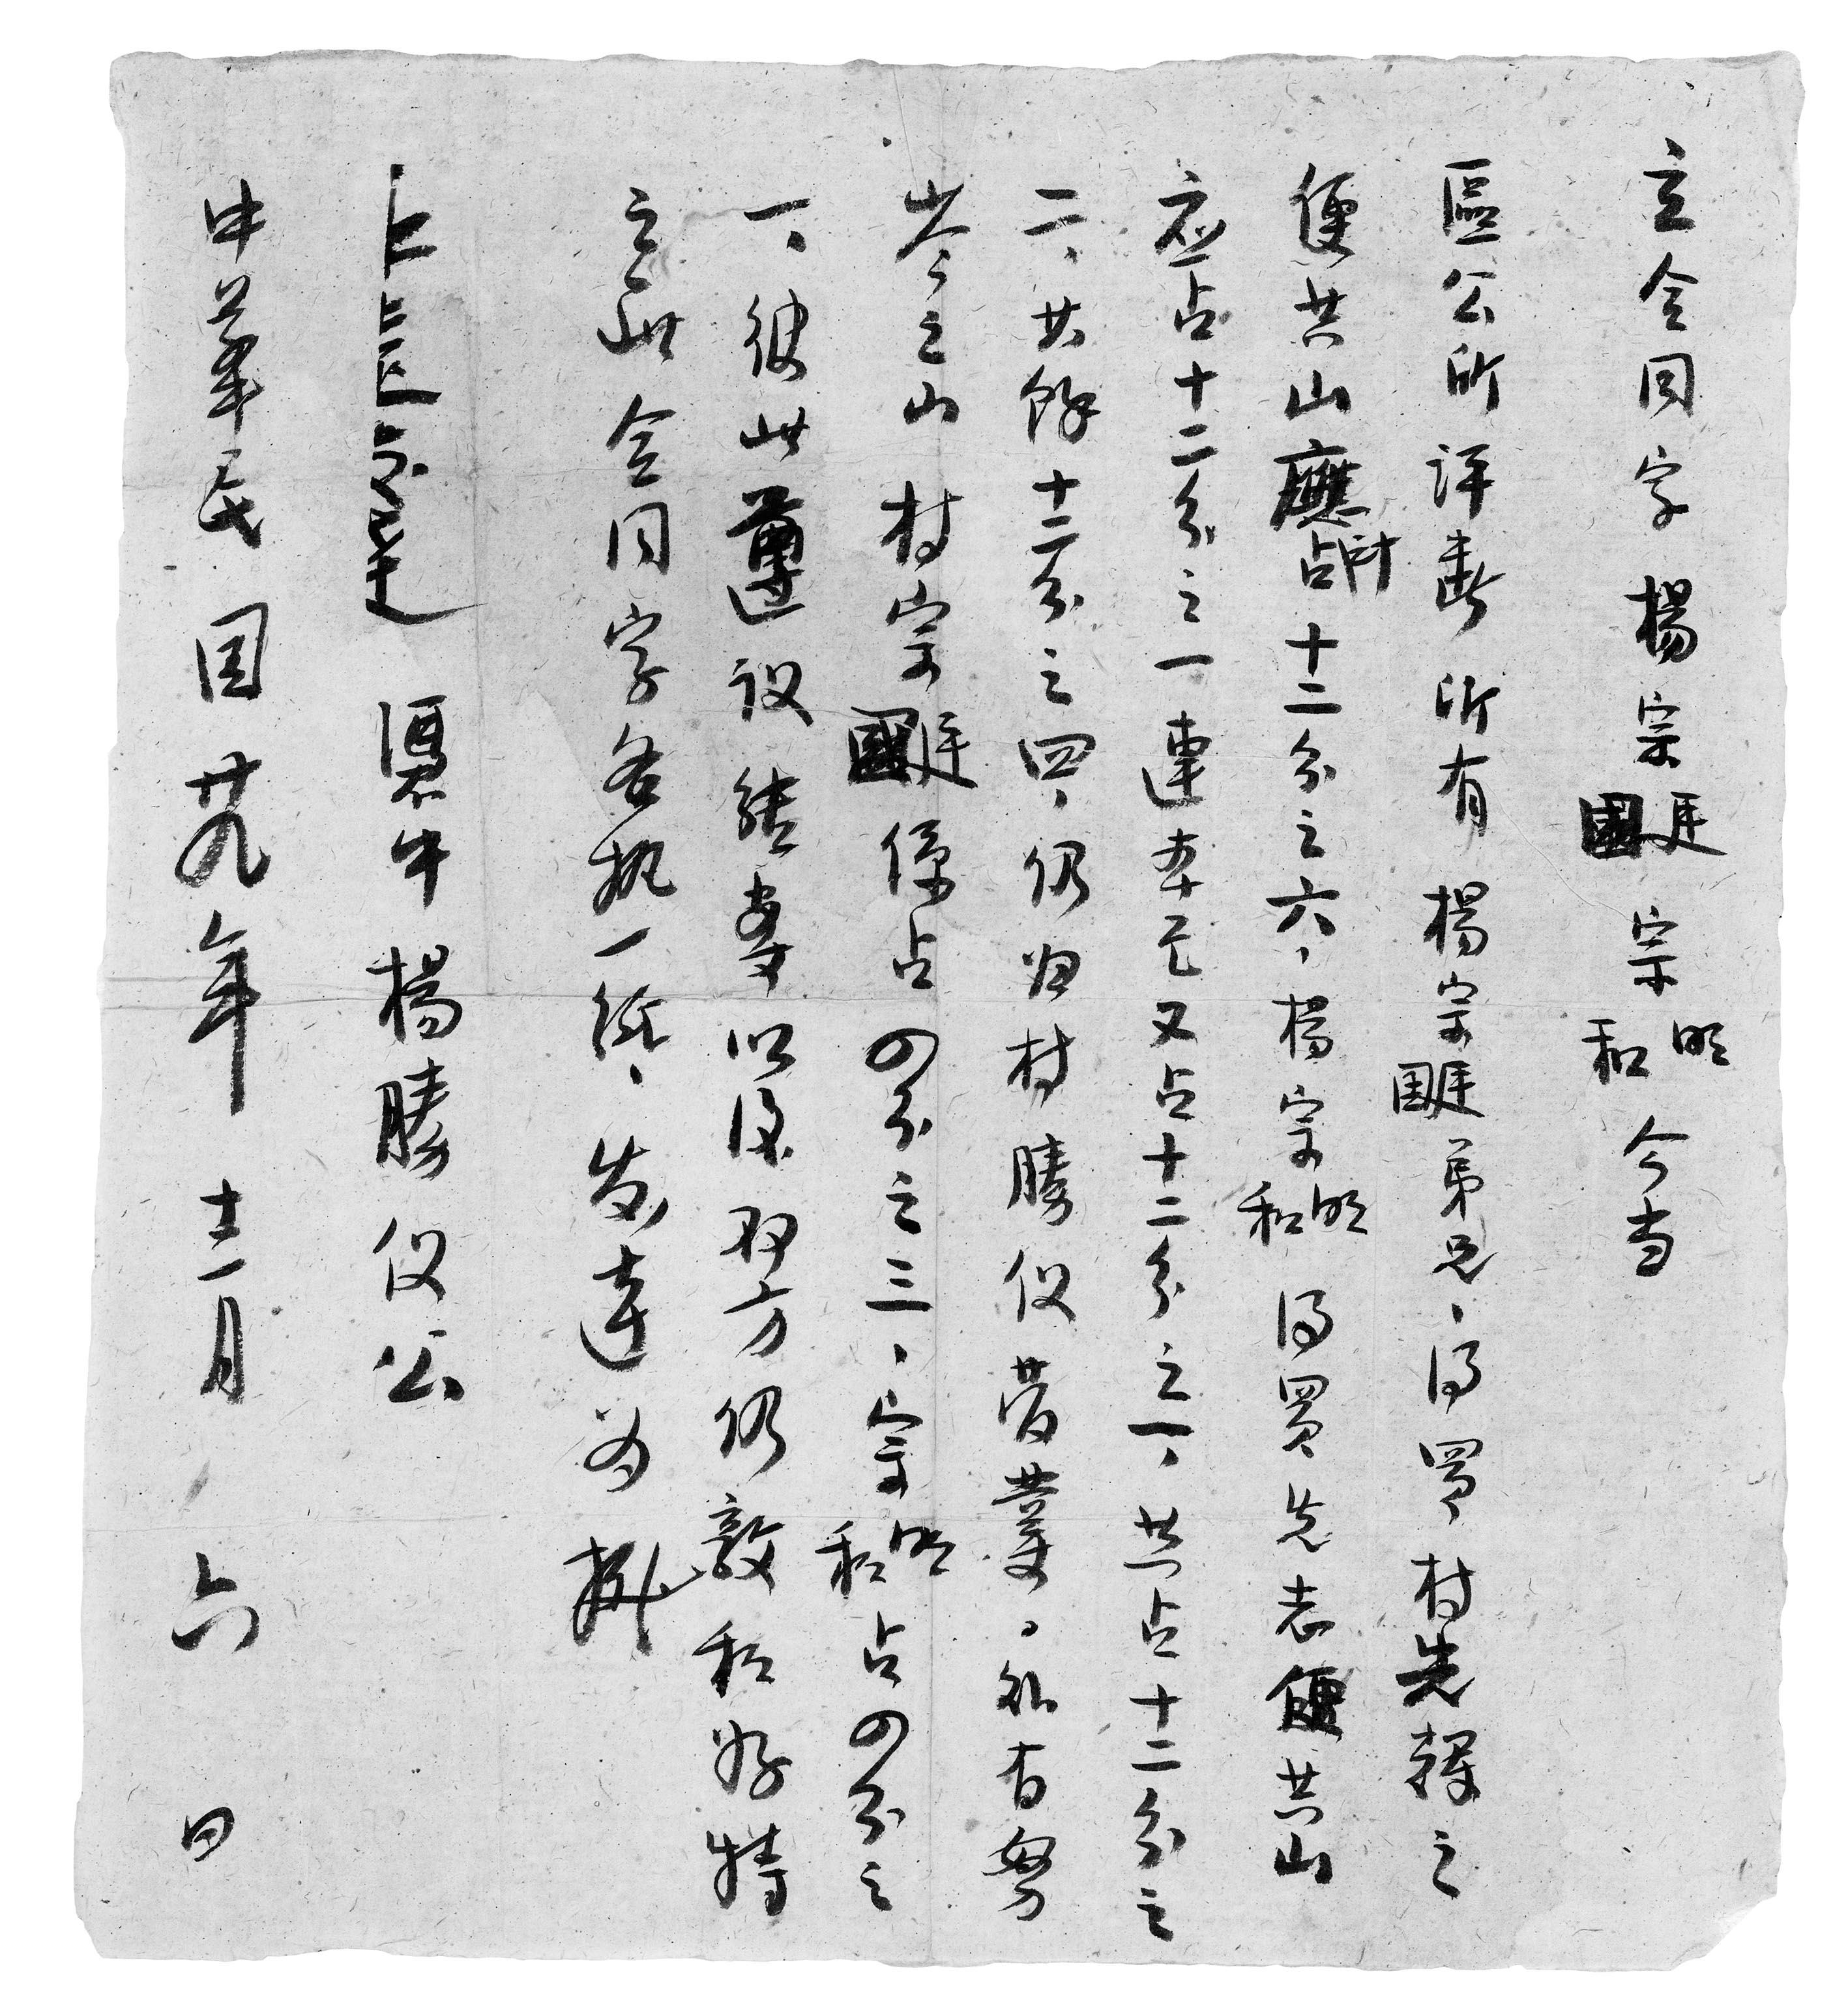 立合同字楊宗廷國宗明和今当
區公所評斷所有楊宗廷國弟兄、得買村先輝之
便共山應占十二分之六、楊宗明和得買先志便共山
应占十二分之一連本己又占十二分之一、共占十二分之
二、其餘十二分之四、仍归村勝仪管業、外有努
岑之山村宗廷國係占四分之三、宗明和占四分之
一、彼此遵议結妻以後双方仍敦和好特
立此合同字各执一纸、发達为據
憑中楊勝仪公
中華民国廿九年十二月六日